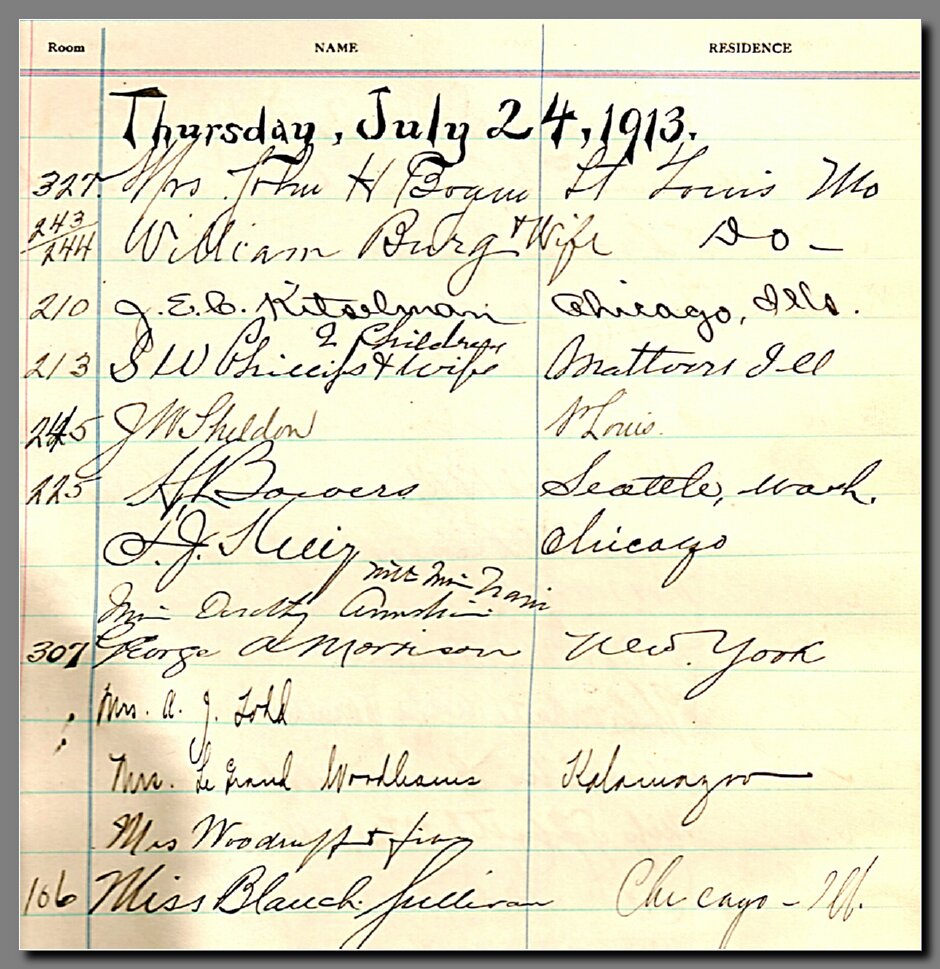 Room NAME RESIDENCE
Thursday, July 24, 1913.
327 Mrs John H Bogue St Louis Mo
243
244 William Burg & Wife Do -
210 J. E. C. Kitselman Chicago, Ills.
2 Children
213 S W Phillips & wife Mattoon Ill
245 J W Sheldon St Louis.
225 Bowers Seattle, Wash.
J. Chicago
with Miss
Miss Dorothy
307 George A Morrison New York
Mrs. A. J. Todd
Mrs. Le Grand Kalamazoo
Mrs Woodruff &
106 Miss Blanch Sullivan Chicago - Ill.